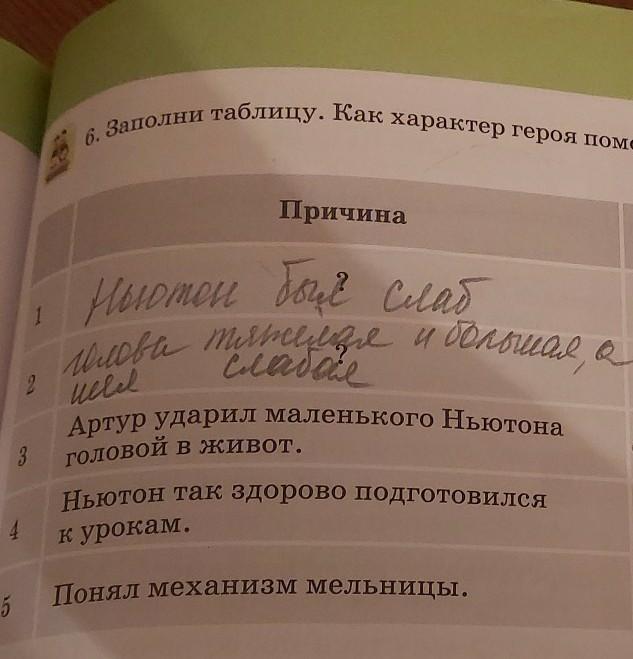 6. Заполни таблицу. Как характер героя пом
Причина
1 Ньютон был слаб
?
голова тяжелая и большая, а
?
2 шея слабая
Артур ударил маленького Ньютона
3 головой в живот.
Ньютон так здорово подготовился
4 к урокам.
5 Понял механизм мельницы.